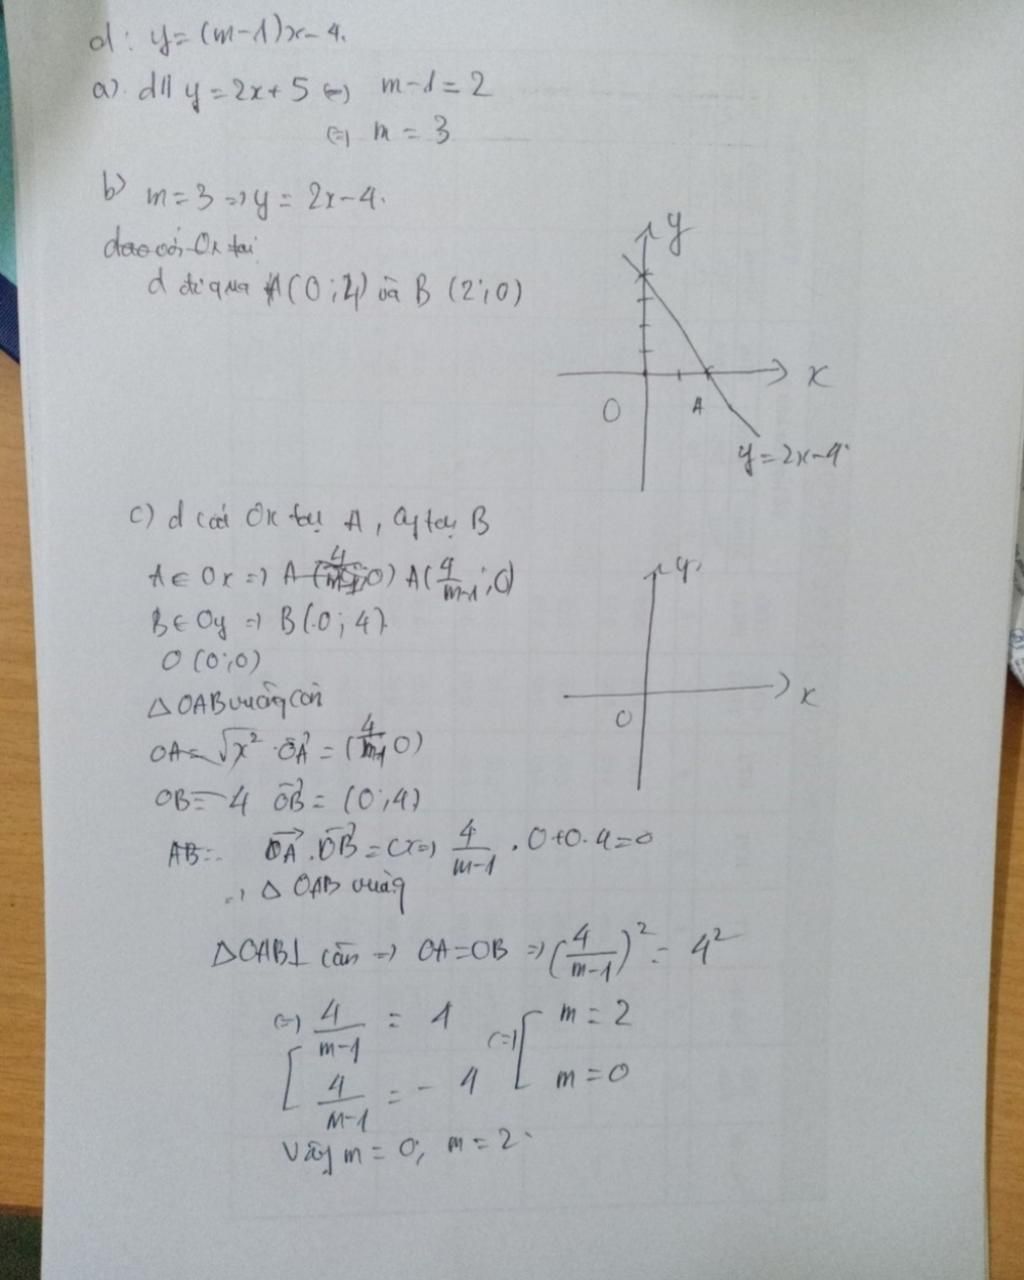 d: y = (m-1)x - 4.
a). d // y = 2x + 5 (=) m - 1 = 2
(=) m = 3
b) m = 3 => y = 2x - 4.
Ox tại
d đi qua A(0; 4) và B (2; 0)
y
x
O
A
y = 2x - 4
c) d cắt Ox tại A, Oy tại B
A ∈ Ox => A A(4/(m-1); 0)
B ∈ Oy => B(0; 4)
O (0; 0)
y
x
O
Δ OAB vuông cân
OA = √x² . OA = (4/(m-1); 0)
OB = 4 OB = (0; 4)
AB = OA . OB = 4/(m-1) . 0 + 0. 4 = 0
=> Δ OAB vuông
Δ OAB ⊥ cân => OA = OB => (4/(m-1))² = 4²
(=) [ 4/(m-1) = 4 (=) [ m = 2
4/(m-1) = - 4 m = 0
Vậy m = 0; m = 2.